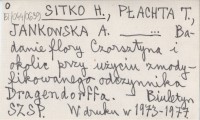 SITKO H., PŁACHTA T.,
JANKOWSKA A. ... Ba-
danie flory Czorsztyna i
okolic przy użyciu zmody-
fikowanego odczynnika
Dragendorffa. Biuletyn
SZSP. W druku w 1975-1977